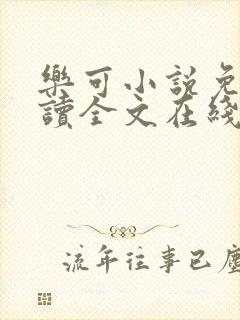 樂可小說免
讀全文在綫
流年往事已塵